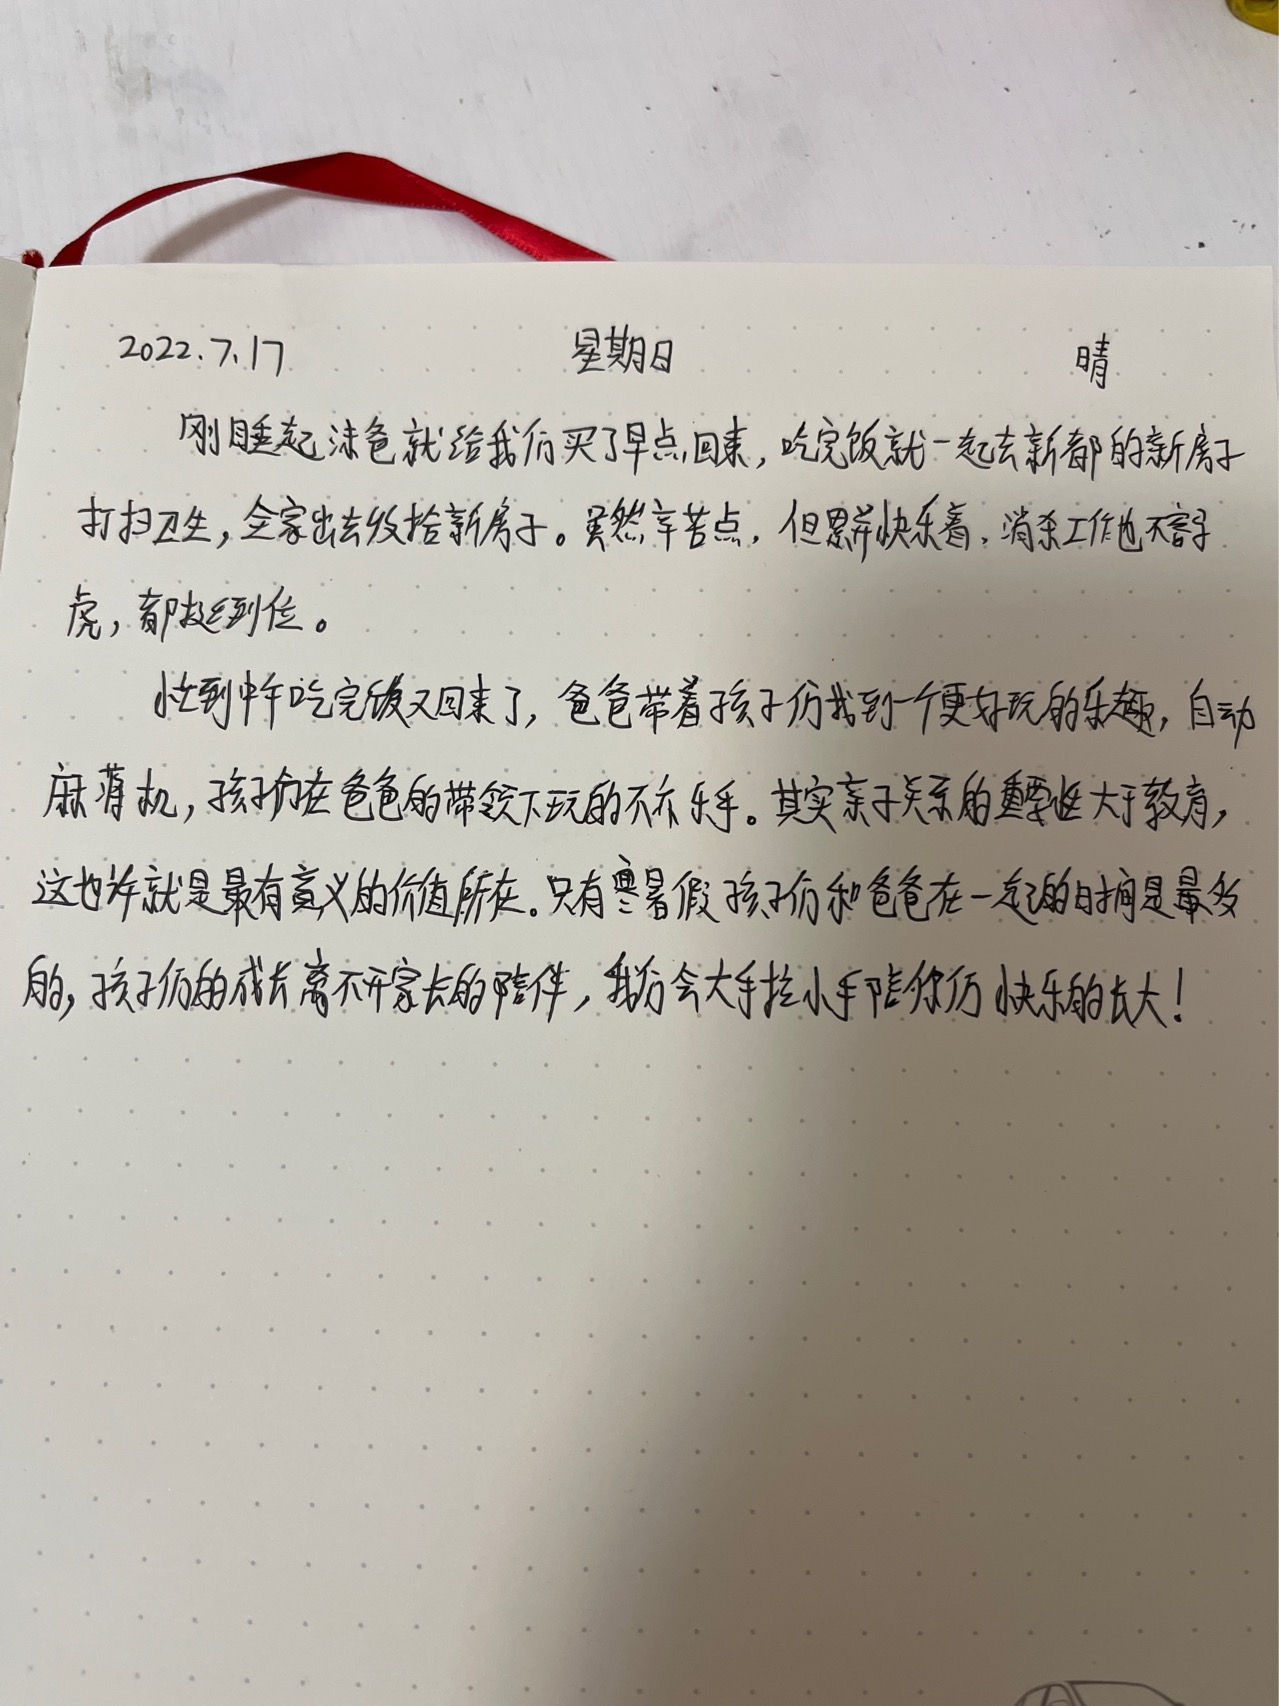 2022.7.17 星期日 晴
刚睡起涞爸就给我们买了早点回来，吃完饭就一起去新都的新房子
打扫卫生，全家出去收拾新房子。虽然辛苦点，但累并快乐着，消杀工作也不含子
虎，都挺到位。
忙到中午吃完饭又回来了，爸爸带着孩子们找到一个更好玩的乐趣，自动
麻将机，孩子们在爸爸的带领下玩的不亦乐乎。其实亲子关系的重要性大于教育，
这也许就是最有意义的价值所在。只有寒暑假孩子们和爸爸在一起的时间是最多
的，孩子们的成长离不开家长的陪伴，我们会大手拉小手陪你们快乐的长大！